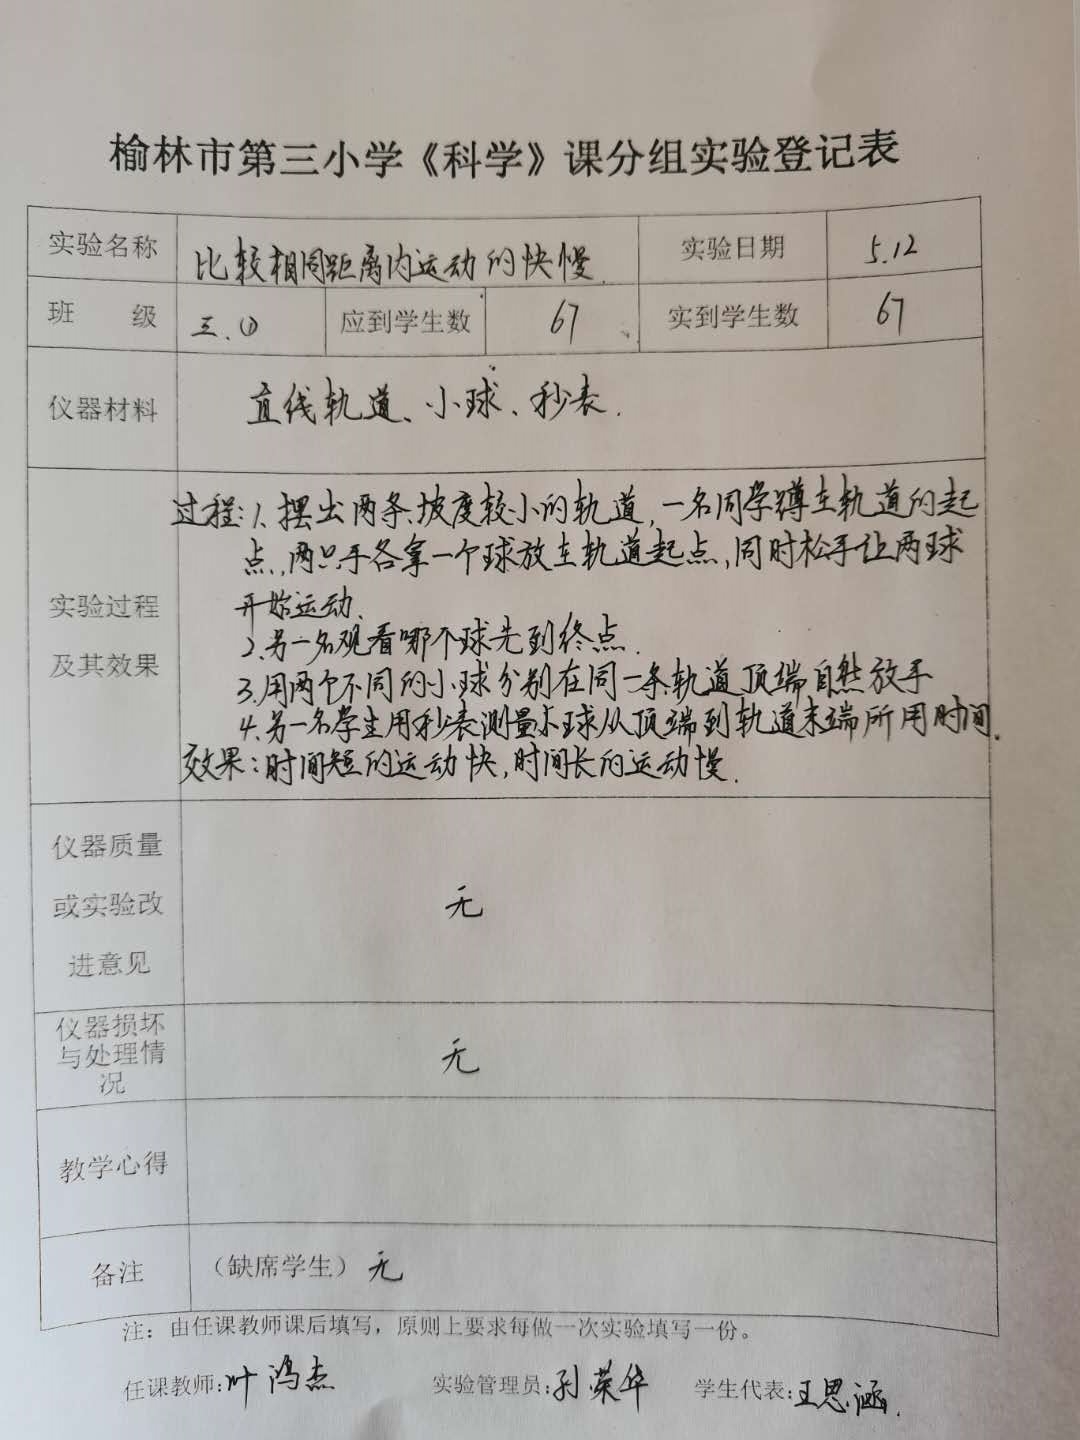 榆林市第三小学《科学》课分组实验登记表
实验名称 比较相同距离内运动的快慢 实验日期 5.12
班 级 三.① 应到学生数 67 实到学生数 67
仪器材料 直线轨道、小球、秒表.
过程:1、摆出两条坡度较小的轨道,一名同学蹲在轨道的起
点,两只手各拿一个球放在轨道起点,同时松手让两球
开始运动.
2、另一名观看哪个球先到终点.
3、用两个不同的小球分别在同一条轨道顶端自然放手
4、另一名学生用秒表测量小球从顶端到轨道末端所用时间.
效果:时间短的运动快,时间长的运动慢.
实验过程
及其效果
仪器质量
或实验改
进意见
无
仪器损坏
与处理情
况
无
教学心得
备注 (缺席学生) 无
注：由任课教师课后填写，原则上要求每做一次实验填写一份。
任课教师:叶鸿杰 实验管理员:孙荣华 学生代表:王思涵.